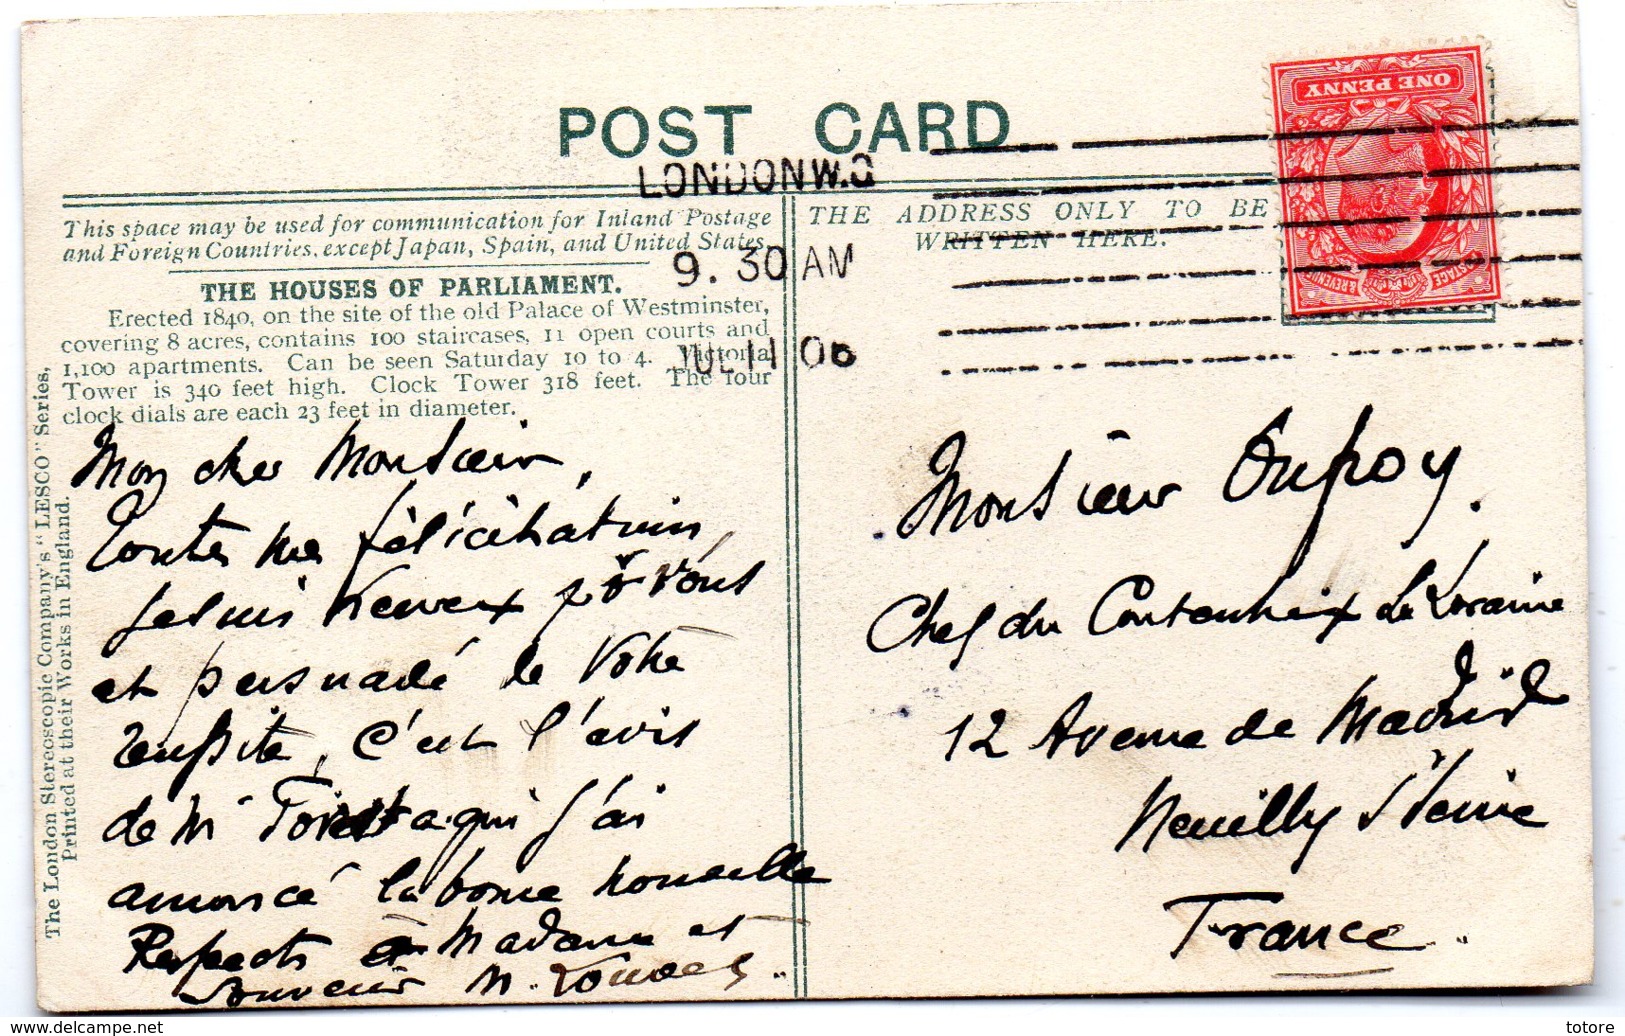 POST CARD
ONE PENNY
POSTAGE & REVENUE
LONDON W.C
9. 30 AM
JUL 11 06
This space may be used for communication for Inland Postage
and Foreign Countries, except Japan, Spain, and United States.
THE HOUSES OF PARLIAMENT.
Erected 1840, on the site of the old Palace of Westminster,
covering 8 acres, contains 100 staircases, 11 open courts and
1,100 apartments. Can be seen Saturday 10 to 4. Victoria
Tower is 340 feet high. Clock Tower 318 feet. The four
clock dials are each 23 feet in diameter.
The London Stereoscopic Company's "LESCO" Series,
Printed at their Works in England.
Mon cher Monsieur,
Toutes mes félicitations
Je suis heureux pr vous
et persuadé de votre
réussite, c'est l'avis
de Mr a qui j'ai
annoncé la bonne nouvelle
Respects à Madame et
souvenir M.
THE ADDRESS ONLY TO BE
WRITTEN HERE.
Monsieur Dupoy.
Chef du Contentieux de Lorraine
12 Avenue de Madrid
Neuilly s/Seine
France.
totore